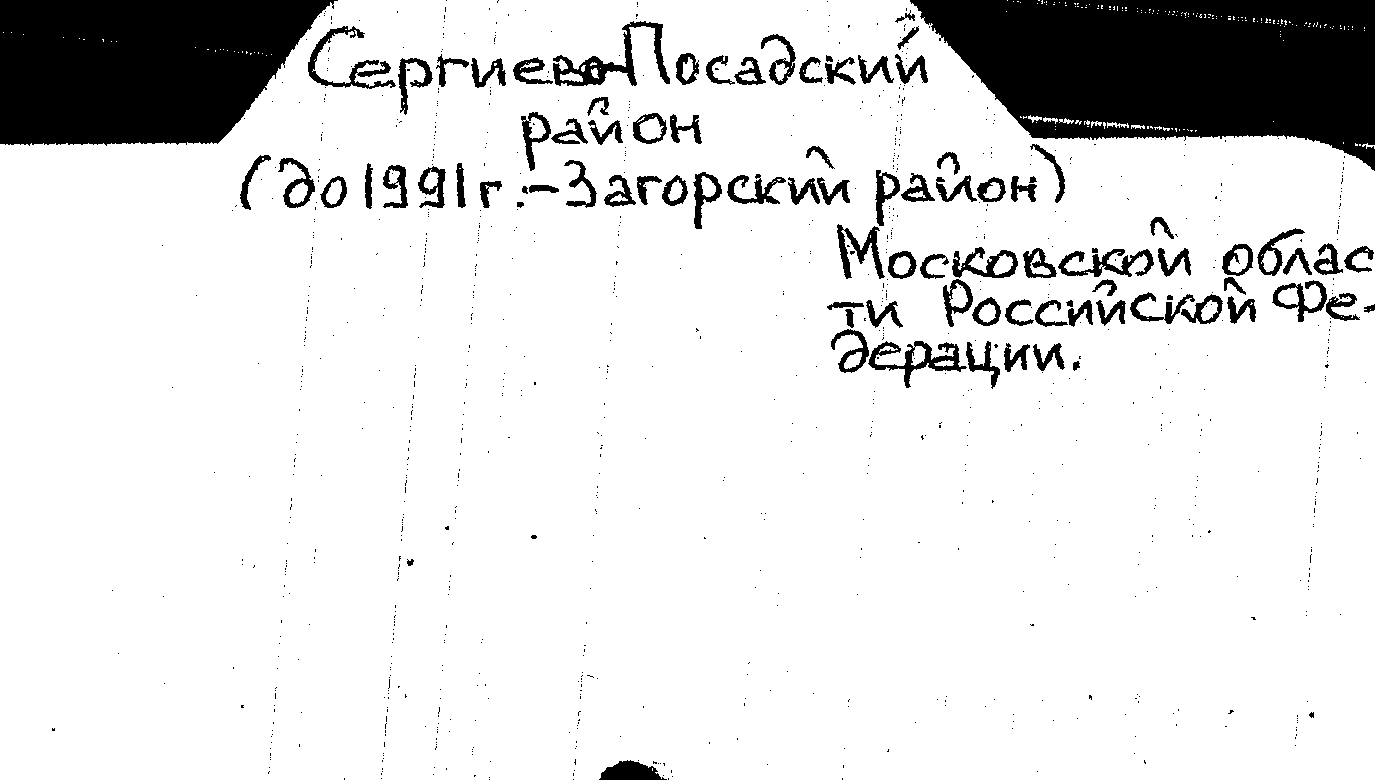 Сергиево-Посадский
район
(до 1991 г. - Загорский район)
Московской облас
ти Российской Фе-
дерации.